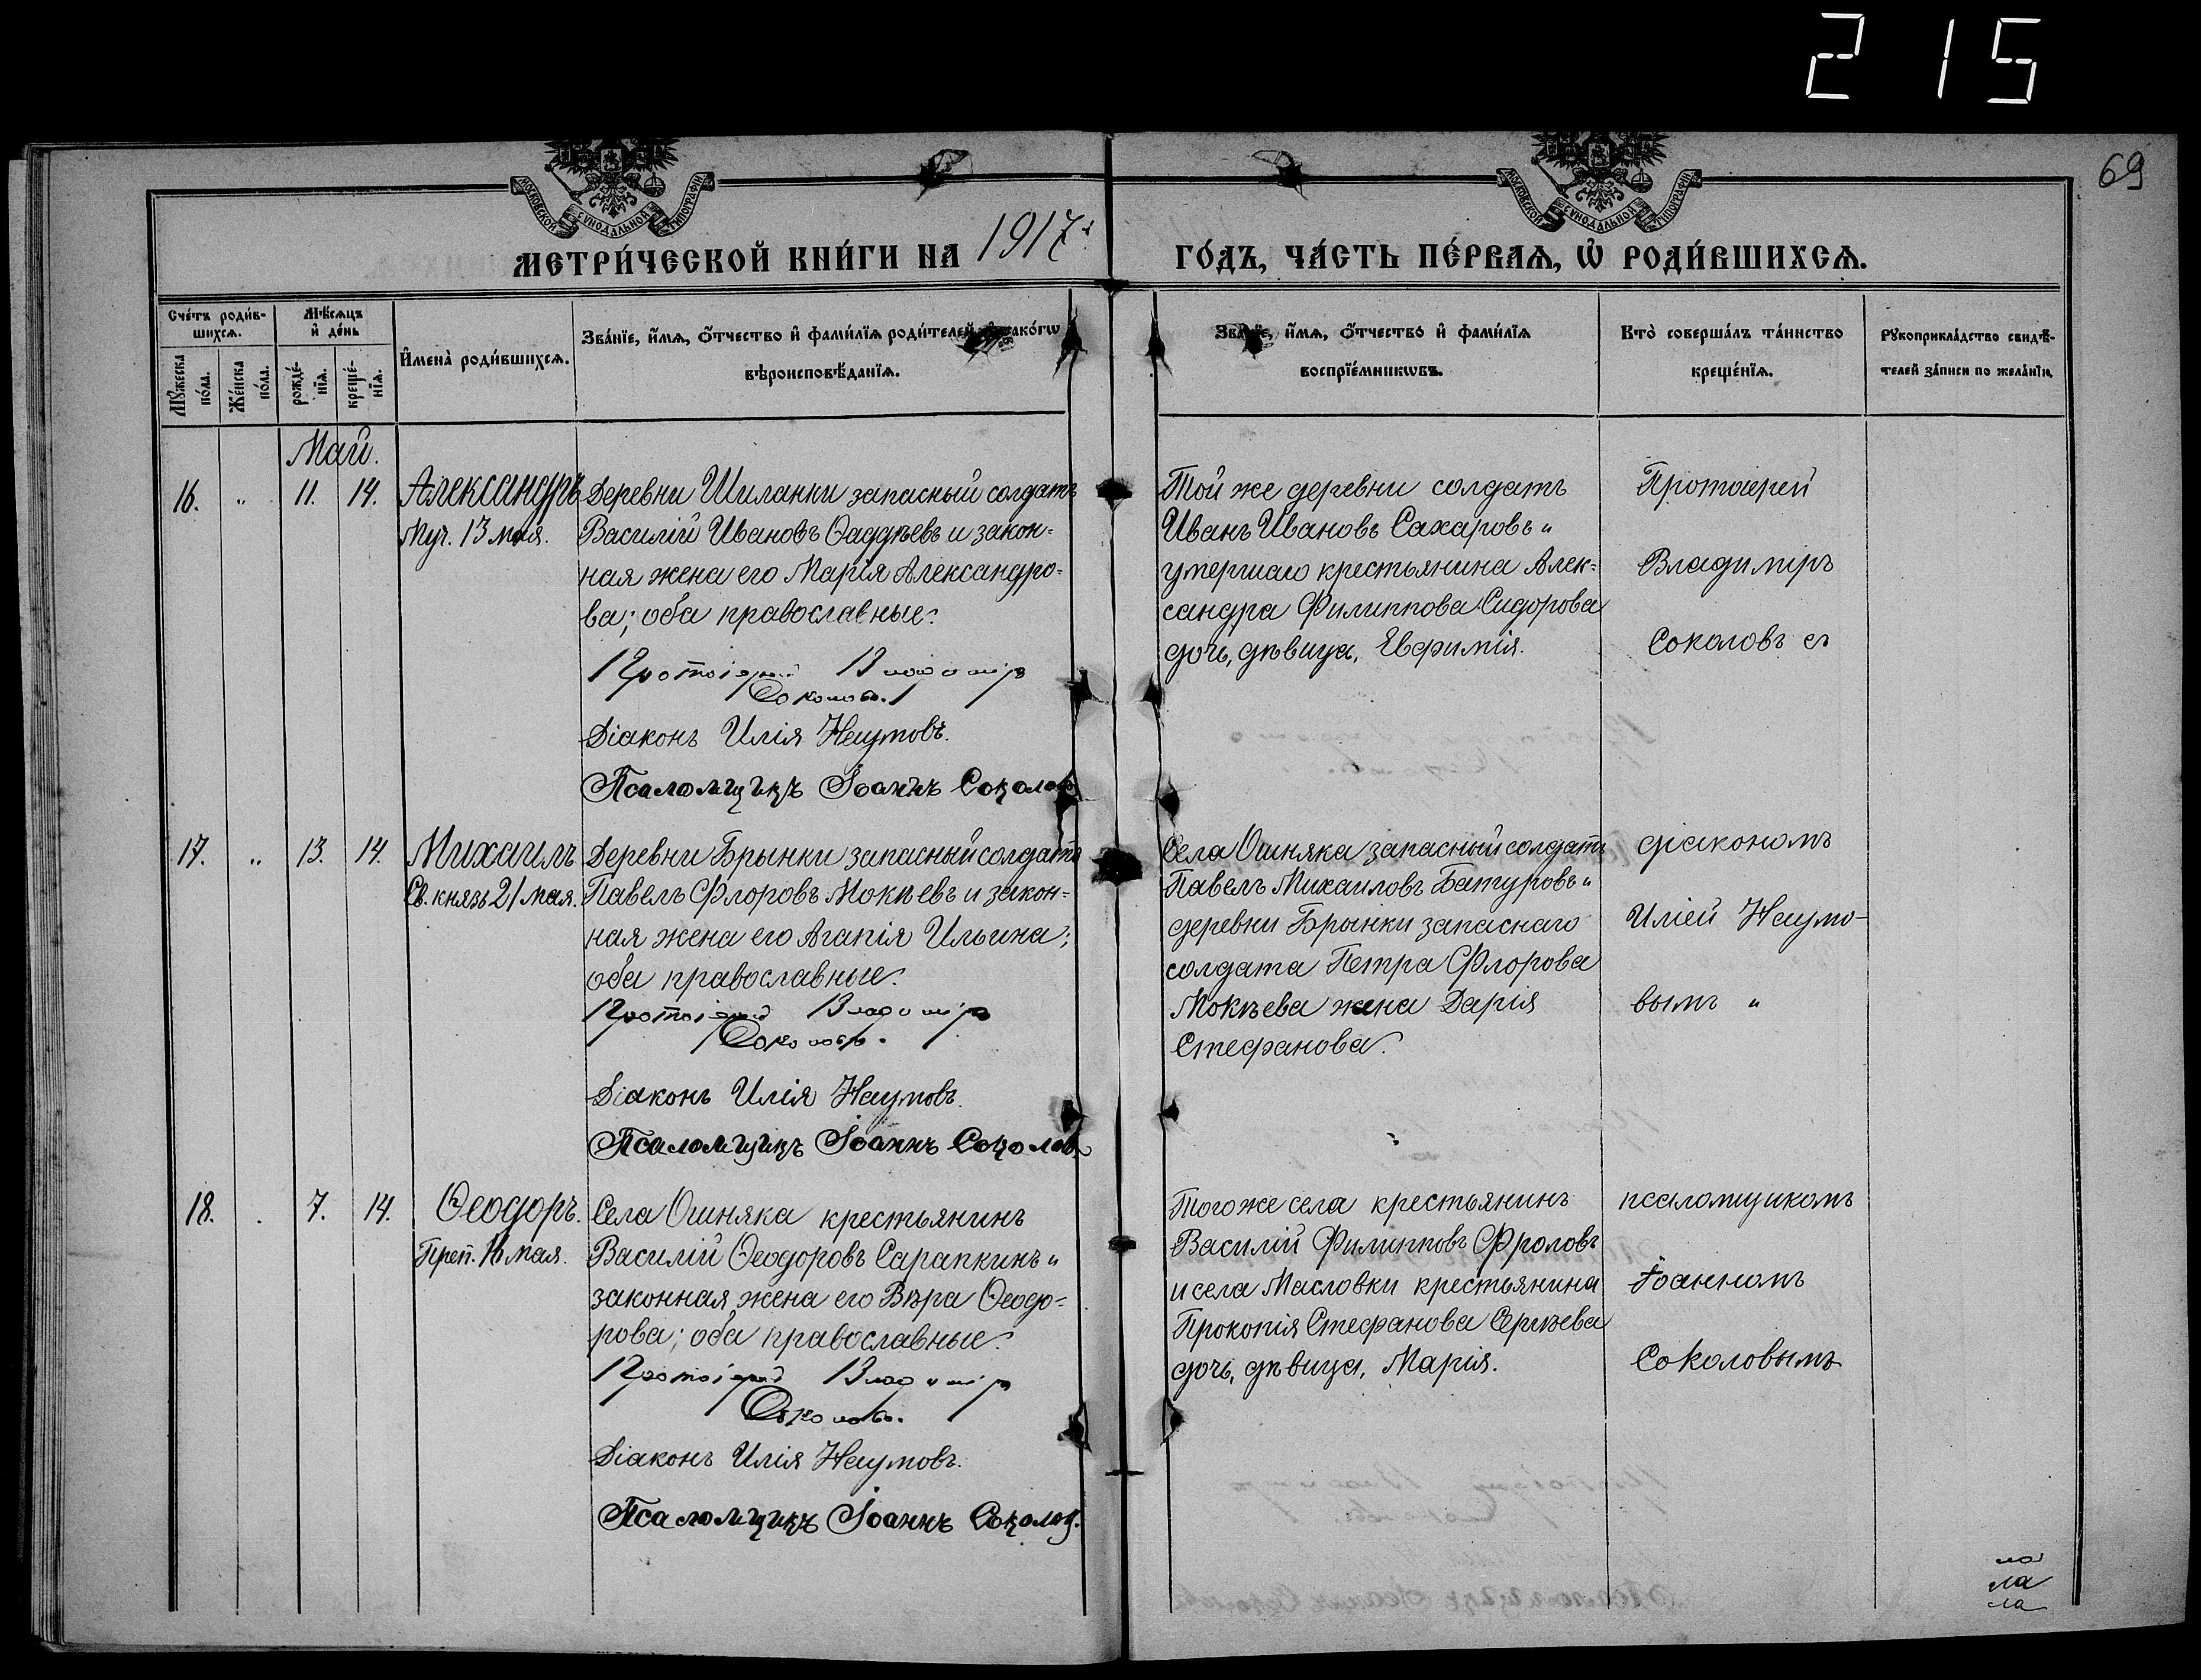 215
69
МОСКОВСКОЙ СѴНОДАЛЬНОЙ ТИПОГРАФІИ
МОСКОВСКОЙ СѴНОДАЛЬНОЙ ТИПОГРАФІИ
МЕТРИ́ЧЕСКОЙ КНИ́ГИ НА 1917 г.
ГО́ДЪ, ЧА́СТЬ ПЕ́РВАѦ, Ѡ҆ РОДИ́ВШИХСѦ.
Сче́тъ роди́в-
шихсѧ.
Мꙋ́жеска
по́ла.
Же́нска
по́ла.
Мѣ́сѧцъ
и҆ де́нь
рожде́-
нїѧ.
креще́-
нїѧ.
И҆мена̀ роди́вшихсѧ.
Зва́нїе, и҆́мѧ, ѻ҆́тчество и҆ фами́лїѧ роди́телей, и҆ како́гѡ
вѣроисповѣ́данїѧ.
Зва́нїе, и҆́мѧ, ѻ҆́тчество и҆ фами́лїѧ
воспрїе́мникѡвъ.
Кто̀ соверша́лъ та́инство
креще́нїѧ.
Рꙋкоприкла́дство свидѣ́-
телей за́писи по жела́нїю.
Май.
16. „ 11. 14. Александръ
Муч. 13 мая.
Деревни Шиланки запасный солдатъ
Василій Ивановъ Ѳаддѣевъ и закон=
ная жена его Марія Александро=
ва; оба православные.
Протоіерей Владиміръ
Соколовъ.
Діаконъ Илія Наумовъ.
Псаломщикъ Іоаннъ Соколовъ
Той же деревни солдатъ
Иванъ Ивановъ Сахаровъ и
умершаго крестьянина Алек=
сандра Филиппова Сидорова
дочь, дѣвица, Евфимія.
Протоіерей
Владиміръ
Соколовъ съ
17. „ 13. 14. Михаилъ
Св. князь 21 мая.
Деревни Брынки запасный солдатъ
Павелъ Флоровъ Мокѣевъ и закон=
ная жена его Агапія Ильина;
оба православные.
Протоіерей Владиміръ
Соколовъ.
Діаконъ Илія Наумовъ.
Псаломщикъ Іоаннъ Соколовъ
Села Ошняка запасный солдатъ
Павелъ Михаиловъ Батуровъ и
деревни Брынки запаснаго
солдата Петра Флорова
Мокѣева жена Дарія
Стефанова.
діакономъ
Иліей Наумо-
вымъ „
18. . 7. 14. Ѳеодоръ.
Преп. мая.
Села Ошняка крестьянинъ
Василій Ѳеодоровъ Сарапкинъ и
законная жена его Вѣра Ѳеодо=
рова; оба православные.
Протоіерей Владиміръ
Соколовъ.
Діаконъ Илія Наумовъ.
Псаломщикъ Іоаннъ Соколов.
Того же села крестьянинъ
Василій Филипповъ Фроловъ
и села Масловки крестьянина
Прокопія Стефанова Сергѣева
дочь, дѣвица, Марія.
псаломщикомъ
Іоанномъ
Соколовымъ